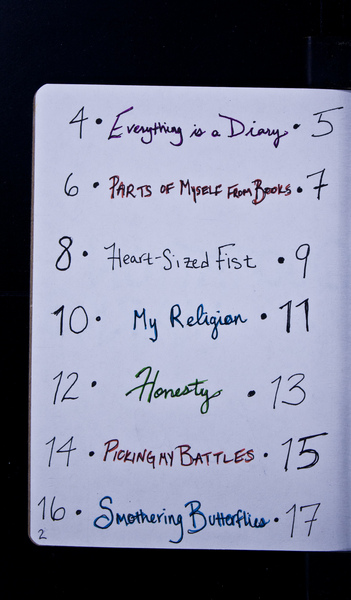 4 • Everything is a Diary • 5
6 • PARTS OF MYSELF FROM BOOKS • 7
8 • Heart-Sized Fist • 9
10 • My Religion • 11
12 • Honesty • 13
14 • PICKING MY BATTLES • 15
16 • Smothering Butterflies • 17
2